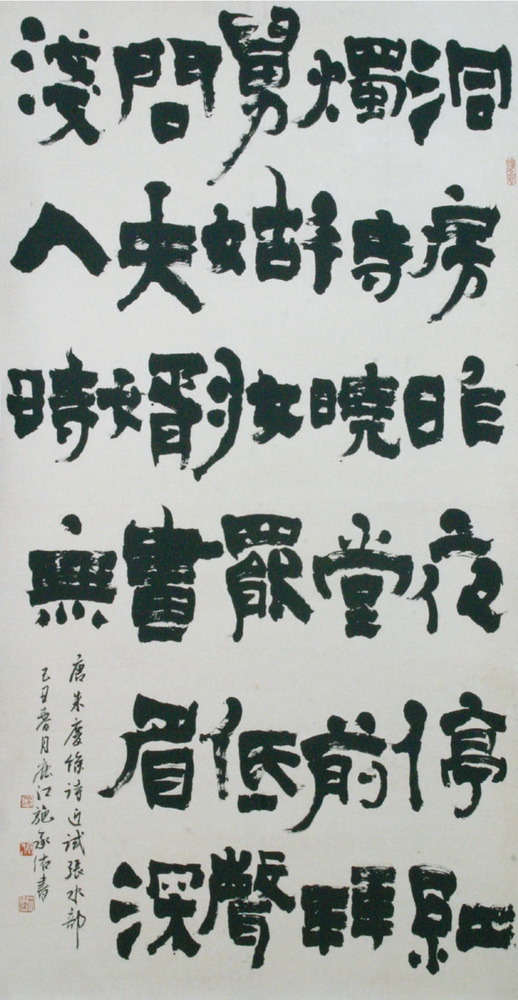 洞房昨夜停紅
燭待曉堂前拜
舅姑妝罷低聲
問夫婿畫眉深
淺入時無
唐朱慶餘詩近試張水部
己丑春月江施承書